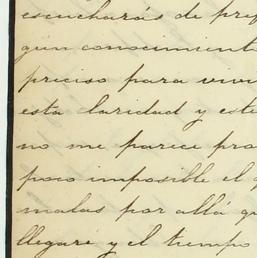 escucharás de pref
gun conocimient
preciso para vivi
esta laridad y este
no me parece pro
poco imposible el q
malas por allá qu
llegaré y el tiempo